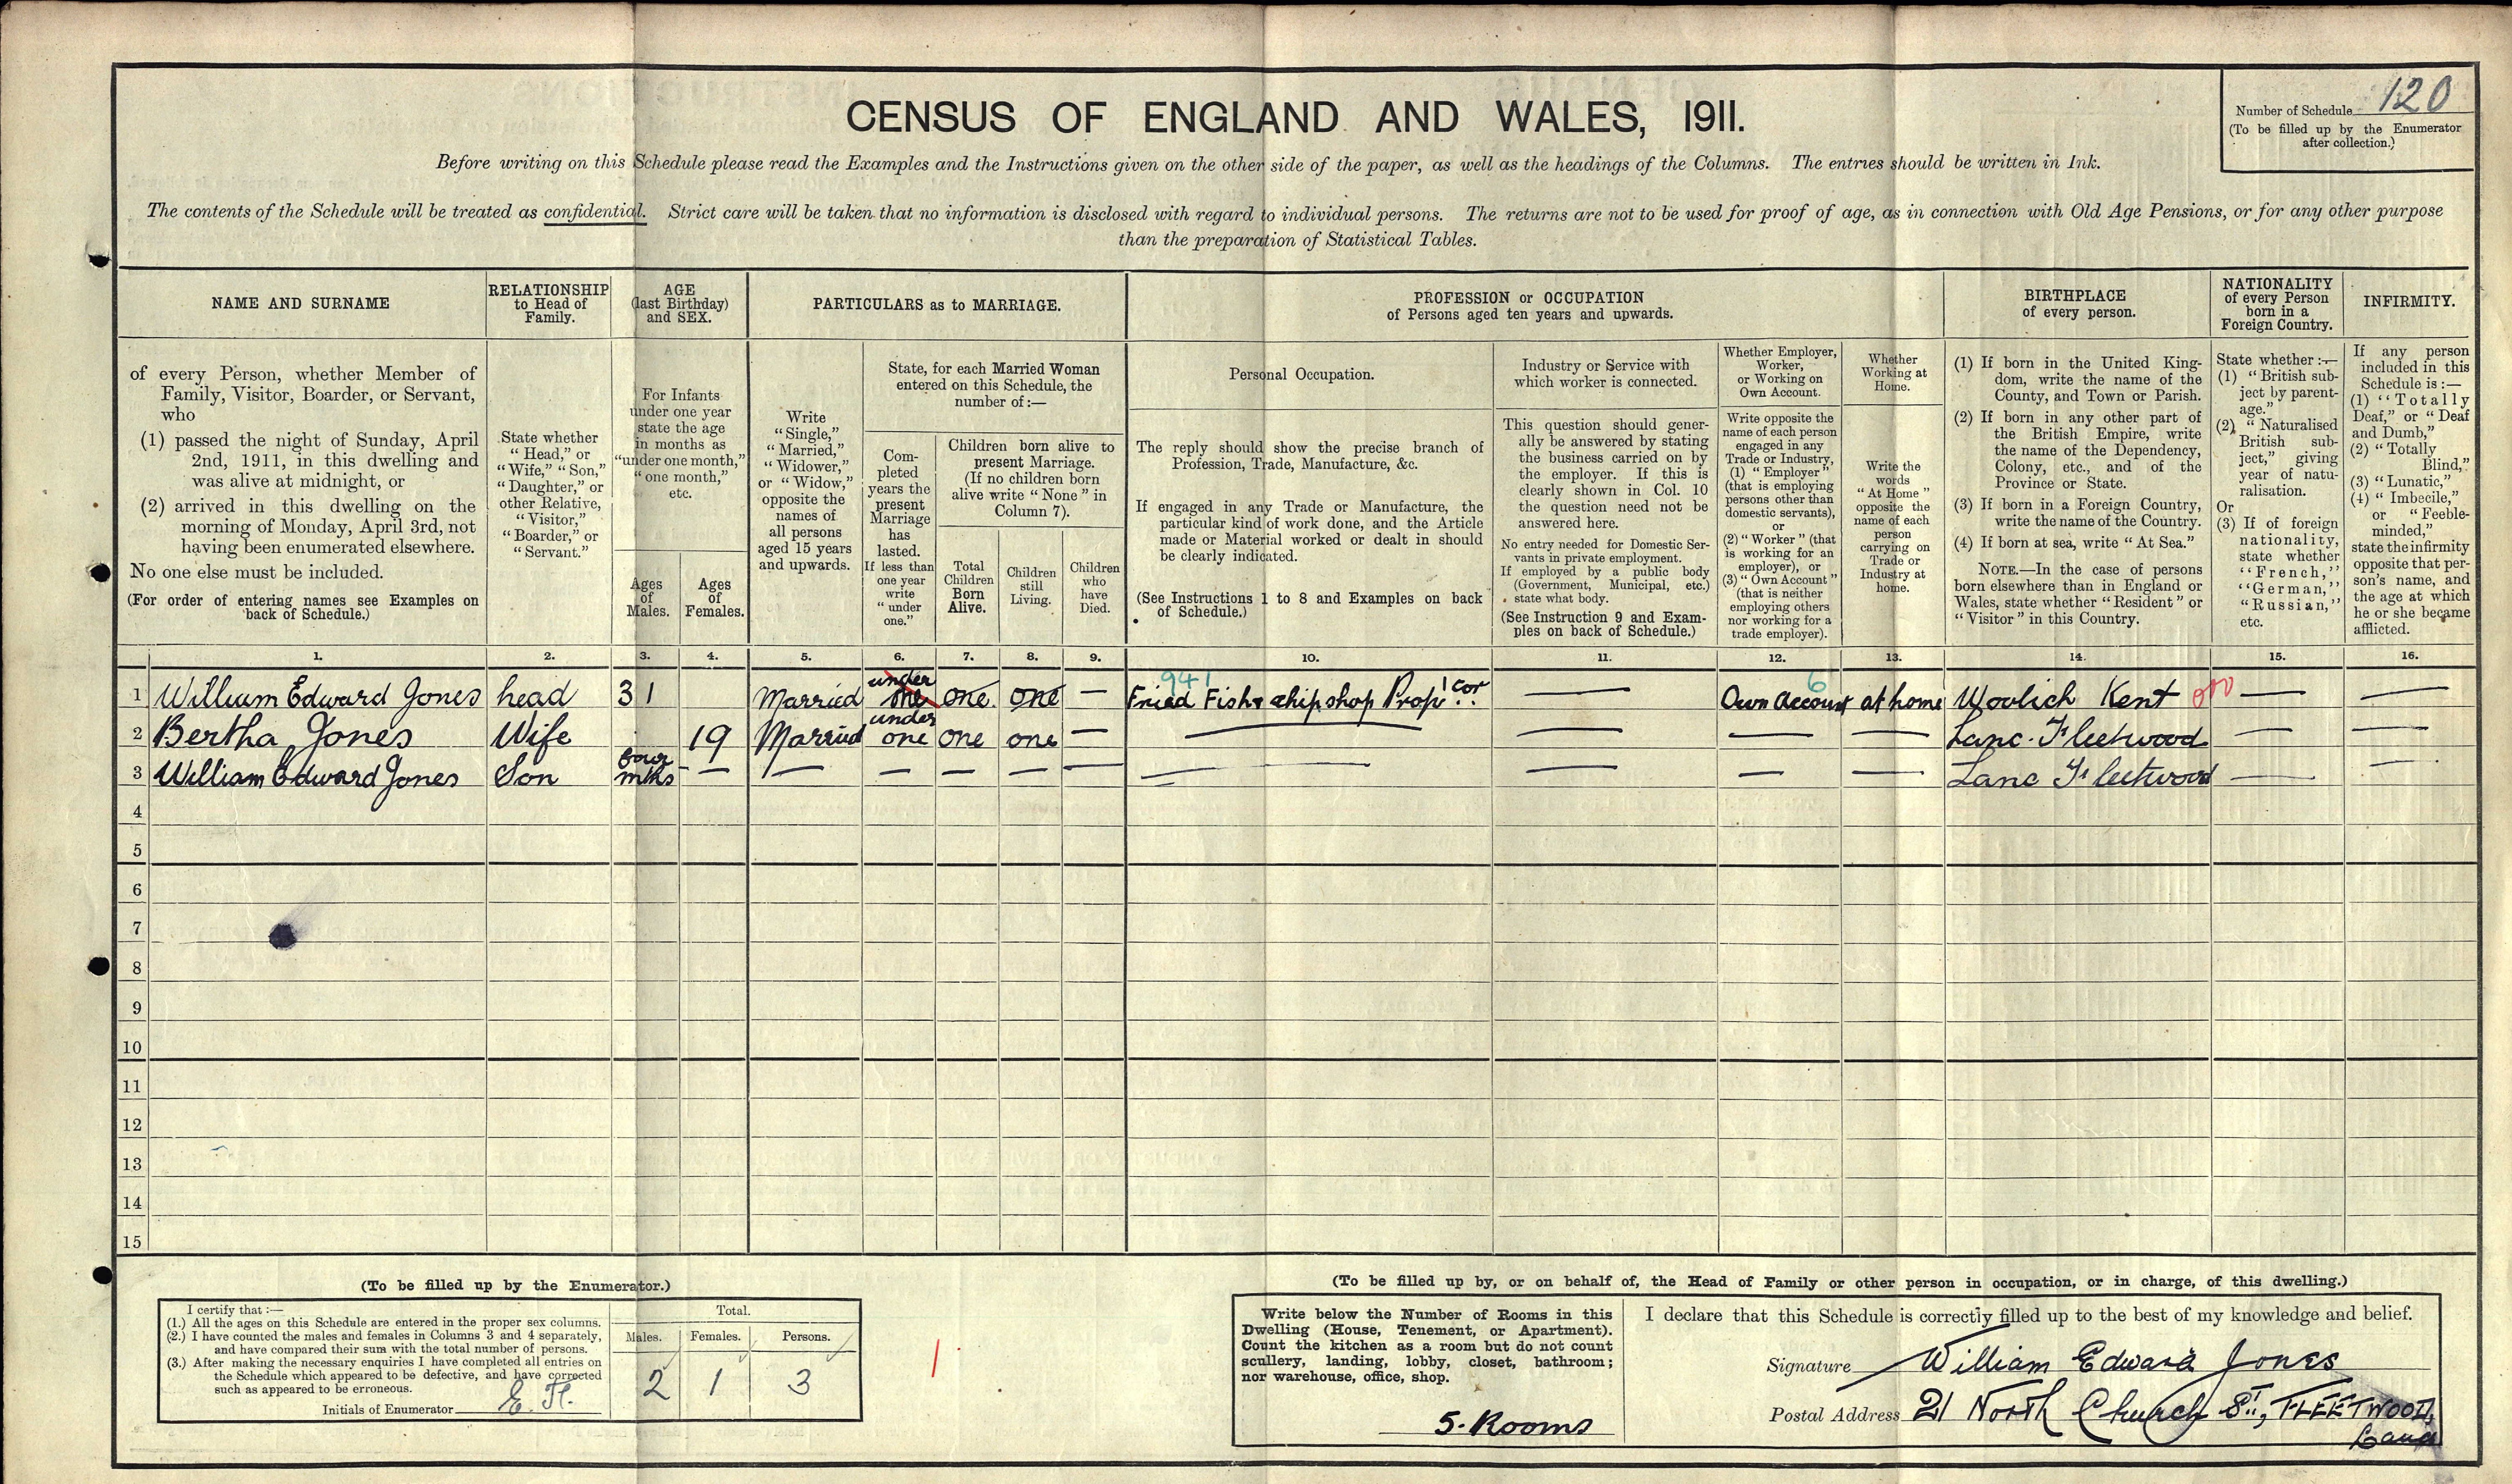 CENSUS OF ENGLAND AND WALES, 1911.
Number of Schedule 120
(To be filled up by the Enumerator
after collection.)
Before writing on this Schedule please read the Examples and the Instructions given on the other side of the paper, as well as the headings of the Columns. The entries should be written in Ink.
The contents of the Schedule will be treated as confidential. Strict care will be taken that no information is disclosed with regard to individual persons. The returns are not to be used for proof of age, as in connection with Old Age Pensions, or for any other purpose
than the preparation of Statistical Tables.
NAME AND SURNAME
of every Person, whether Member of
Family, Visitor, Boarder, or Servant,
who
(1) passed the night of Sunday, April
2nd, 1911, in this dwelling and
was alive at midnight, or
(2) arrived in this dwelling on the
morning of Monday, April 3rd, not
having been enumerated elsewhere.
No one else must be included.
(For order of entering names see Examples on
back of Schedule.)
RELATIONSHIP
to Head of
Family.
State whether
"Head," or
"Wife," "Son,"
"Daughter," or
other Relative,
"Visitor,"
"Boarder," or
"Servant."
AGE
(last Birthday)
and SEX.
For Infants
under one year
state the age
in months as
"under one month,"
"one month,"
etc.
Ages
of
Males.
Ages
of
Females.
PARTICULARS as to MARRIAGE.
Write
"Single,"
"Married,"
"Widower,"
or "Widow,"
opposite the
names of
all persons
aged 15 years
and upwards.
State, for each Married Woman
entered on this Schedule, the
number of:—
Com-
pleted
years the
present
Marriage
has
lasted.
If less than
one year
write
"under
one."
Children born alive to
present Marriage.
(If no children born
alive write "None" in
Column 7).
Total
Children
Born
Alive.
Children
still
Living.
Children
who
have
Died.
PROFESSION or OCCUPATION
of Persons aged ten years and upwards.
Personal Occupation.
The reply should show the precise branch of
Profession, Trade, Manufacture, &c.
If engaged in any Trade or Manufacture, the
particular kind of work done, and the Article
made or Material worked or dealt in should
be clearly indicated.
(See Instructions 1 to 8 and Examples on back
of Schedule.)
Industry or Service with
which worker is connected.
This question should gener-
ally be answered by stating
the business carried on by
the employer. If this is
clearly shown in Col. 10
the question need not be
answered here.
No entry needed for Domestic Ser-
vants in private employment.
If employed by a public body
(Government, Municipal, etc.)
state what body.
(See Instruction 9 and Exam-
ples on back of Schedule.)
Whether Employer,
Worker,
or Working on
Own Account.
Write opposite the
name of each person
engaged in any
Trade or Industry,
(1) "Employer"
(that is employing
persons other than
domestic servants),
or
(2) "Worker" (that
is working for an
employer), or
(3) "Own Account"
(that is neither
employing others
nor working for a
trade employer).
Whether
Working at
Home.
Write the
words
"At Home"
opposite the
name of each
person
carrying on
Trade or
Industry at
home.
BIRTHPLACE
of every person.
(1) If born in the United King-
dom, write the name of the
County, and Town or Parish.
(2) If born in any other part of
the British Empire, write
the name of the Dependency,
Colony, etc., and of the
Province or State.
(3) If born in a Foreign Country,
write the name of the Country.
(4) If born at sea, write "At Sea."
NOTE.—In the case of persons
born elsewhere than in England or
Wales, state whether "Resident" or
"Visitor" in this Country.
NATIONALITY
of every Person
born in a
Foreign Country.
State whether:—
(1) "British sub-
ject by parent-
age."
(2) "Naturalised
British sub-
ject," giving
year of natu-
ralisation.
Or
(3) If of foreign
nationality,
state whether
"French,"
"German,"
"Russian,"
etc.
INFIRMITY.
If any person
included in this
Schedule is:—
(1) "Totally
Deaf," or "Deaf
and Dumb,"
(2) "Totally
Blind,"
(3) "Lunatic,"
(4) "Imbecile,"
or "Feeble-
minded,"
state the infirmity
opposite that per-
son's name, and
the age at which
he or she became
afflicted.
1. 2. 3. 4. 5. 6. 7. 8. 9. 10. 11. 12. 13. 14. 15. 16.
941 6
1 William Edward Jones head 31 Married under one one one — Fried Fish & chip shop Prop'. cor — Own Account at home Woolich Kent 010 — —
2 Bertha Jones Wife 19 Married under one one one — — — — Lanc. Fleetwood — —
3 William Edward Jones Son four mths — — — — — — — — — — Lanc Fleetwood — —
4
5
6
7
8
9
10
11
12
13
14
15
(To be filled up by the Enumerator.)
I certify that:—
(1.) All the ages on this Schedule are entered in the proper sex columns.
(2.) I have counted the males and females in Columns 3 and 4 separately,
and have compared their sum with the total number of persons.
(3.) After making the necessary enquiries I have completed all entries on
the Schedule which appeared to be defective, and have corrected
such as appeared to be erroneous.
Initials of Enumerator E. H.
Total.
Males. Females. Persons.
2 1 3
1
(To be filled up by, or on behalf of, the Head of Family or other person in occupation, or in charge, of this dwelling.)
Write below the Number of Rooms in this
Dwelling (House, Tenement, or Apartment).
Count the kitchen as a room but do not count
scullery, landing, lobby, closet, bathroom;
nor warehouse, office, shop.
5. Rooms
I declare that this Schedule is correctly filled up to the best of my knowledge and belief.
Signature William Edward Jones
Postal Address 21 North Church St, FLEETWOOD,
Lancs